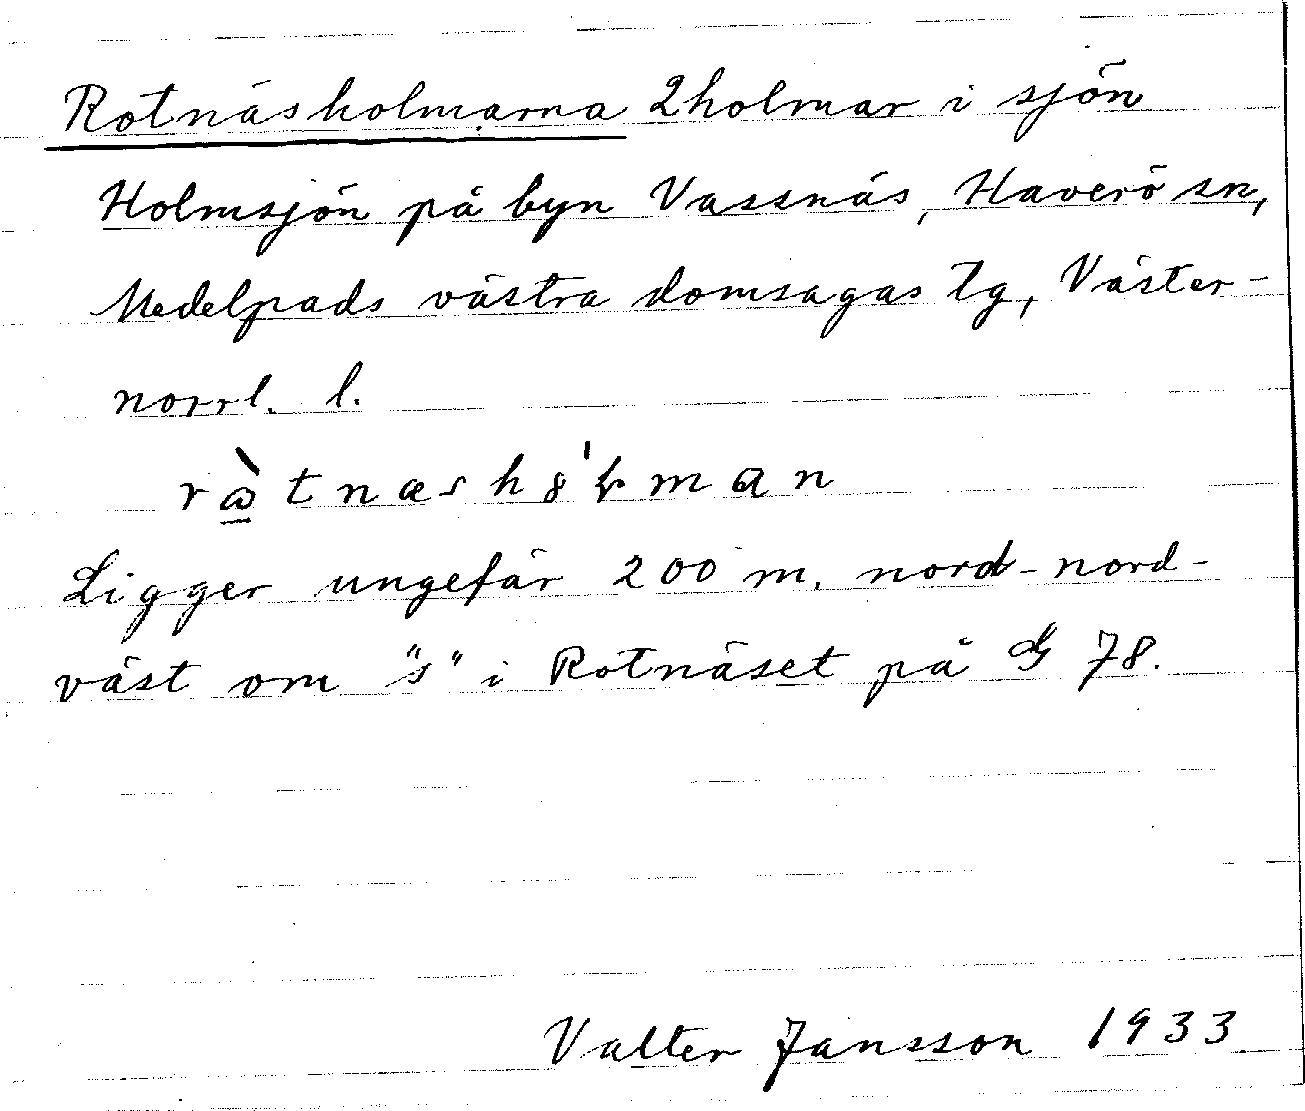 Rotnäsholmarna 2 holmar i sjön
Holmsjön på byn Vassnäs, Haverö sn,
Medelpads västra domsagas tg, Väster-
norrl. l.
Ligger ungefär 200 m. nord-nord-
väst om "s" i Rotnäset på G 78.
Valter Jansson 1933